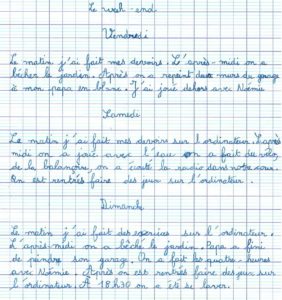 Le week-end
Vendredi
Le matin j'ai fait mes devoirs. L'après-midi on a
bêcher le jardin. Après on a repeint deux murs du garage
à mon papa en blanc. J'ai joié dehors avec Noémie
Samedi
Le matin j'ai fait mes devoirs sur l'ordinateur. L'après
midi on a joié avec l'eau on a fait du vélo,
de la balançoire, on a écouté la radio dans notre cour.
On est rentrés faire des jeux sur l'ordinateur.
Dimanche
Le matin j'ai fait des exercices sur l'ordinateur.
L'après-midi on a bêché le jardin. Papa a fini
de peindre son garage. On a fait les quatre-heures
avec Noémie. Après on est rentrés faire des jeux sur
l'ordinateur. À 18h30 on a été se laver.